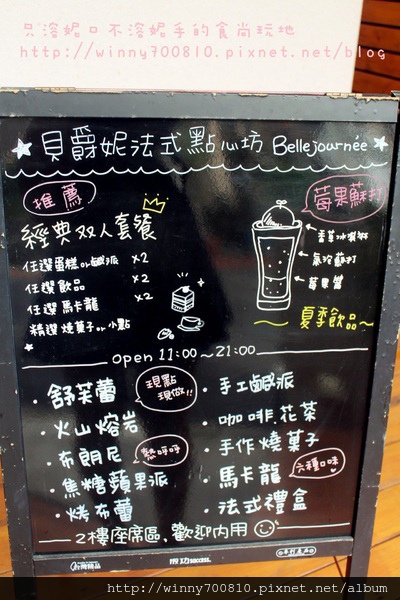 只溶妮口不溶妮手的食尚玩地
http://winny700810.pixnet.net/blog
貝爵妮法式點心坊 Bellejournée
推薦
經典双人套餐
任選蛋糕or鹹派 x2
任選飲品 x2
任選馬卡龍 x2
精選燒菓子or小點
莓果蘇打
香草冰淇淋
氣泡蘇打
莓果醬
夏季飲品~
open 11:00~21:00
舒芙蕾
現點現做!!
火山熔岩
布朗尼
熱呼呼
焦糖蘋果派
烤布蕾
手工鹹派
咖啡.花茶
手作燒菓子
馬卡龍
六種口味
法式禮盒
2樓座席區,歡迎內用
success.
http://winny700810.pixnet.net/album